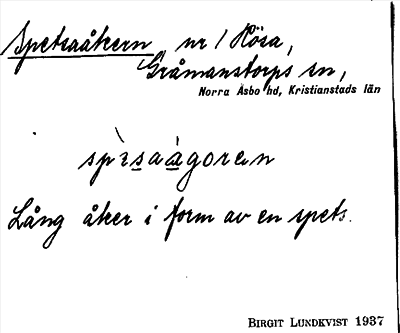 Spetsaåkern, nr 1 Hösa,
Gråmanstorps sn,
Norra Åsbo hd, Kristianstads län
spɛ̀saàgoren
Lång åker i form av en spets.
BIRGIT LUNDKVIST 1937